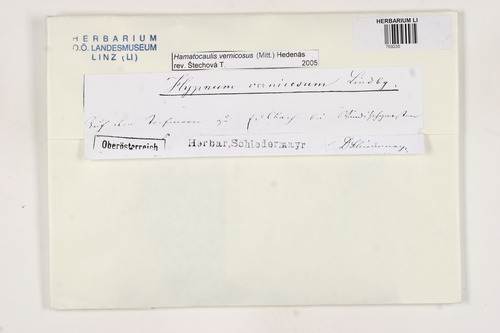 HERBARIUM
O.Ö. LANDESMUSEUM
LINZ (LI)
HERBARIUM LI
Hamatocaulis vernicosus (Mitt.) Hedenäs
rev. Štechová T. 2005
Hypnum vernicosum Lindbg.
Auf dem Torfmoore zu bei
Oberösterreich
Herbar, Schiedermayr
Dr Schiedermayr